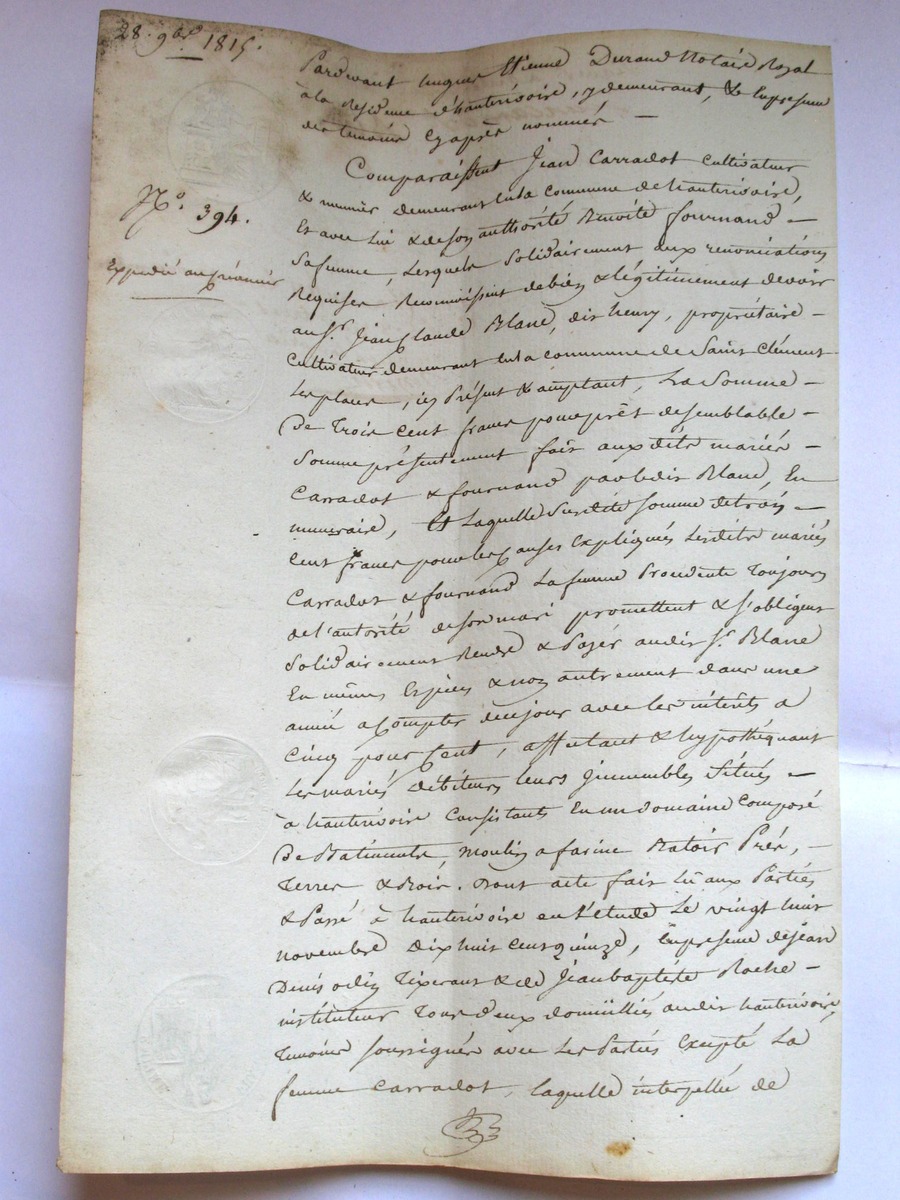 28. 9bre 1815.
N.o 394.
Expédié au créancier
Pardevant hugues Etienne Durand Notaire Royal
à la Résidence d'hauterivoire, y demeurant, & En presence
des temoins Cy après nommés —
Comparaissent Jean Carradot Cultivateur
& munier demeurant En la Commune de hauterivoire,
Et avec Lui & de son authorité Benoite fournand —
Sa femme, Lesquels Solidairement aux renonciations
Requises Reconnoissent de bien & légitimement devoir
au S.r Jean Claude Blanc, dit henry, propriétaire —
Cultivateur demeurant En la commune de Saint Clément
Les places, icy Présent & acceptant, La Somme —
De Trois Cent francs pour prêt de semblable —
Somme présentement fait aux dits mariés —
Carradot & fournand par ledit Blanc, En
numeraire, Et Laquelle Susdite Somme de trois —
Cent francs pour les Causes Expliquées Lesdits mariés
Carradot & fournand La femme Procedente Toujours
de l'autorité de son mari promettent & s'obligent
Solidairement Rendre & Payer audit S.r Blanc
En mêmes Espèces & non autrement dans une
année a Compter de ce jour avec les intérêts a
Cinq pour Cent, affectant & hypothéquant
Les mariés Débiteurs leurs Immeubles Situés —
à hauterivoire Consistants En un domaine Composé
De Batiments, Moulin a farine Batoir Prés, —
Terres & Bois. Dont acte fait Lû aux Parties
& Passé à hauterivoire en L'etude Le vingt huit
novembre Dix huit Cent quinze, En presence de jean
Denis odin Tixerant & de Jean baptiste Roche —
instituteur Tous deux domiciliés audit hauterivoire,
Temoins soussignés avec Les Parties Excepté La
femme Carradot, Laquelle interpellée de